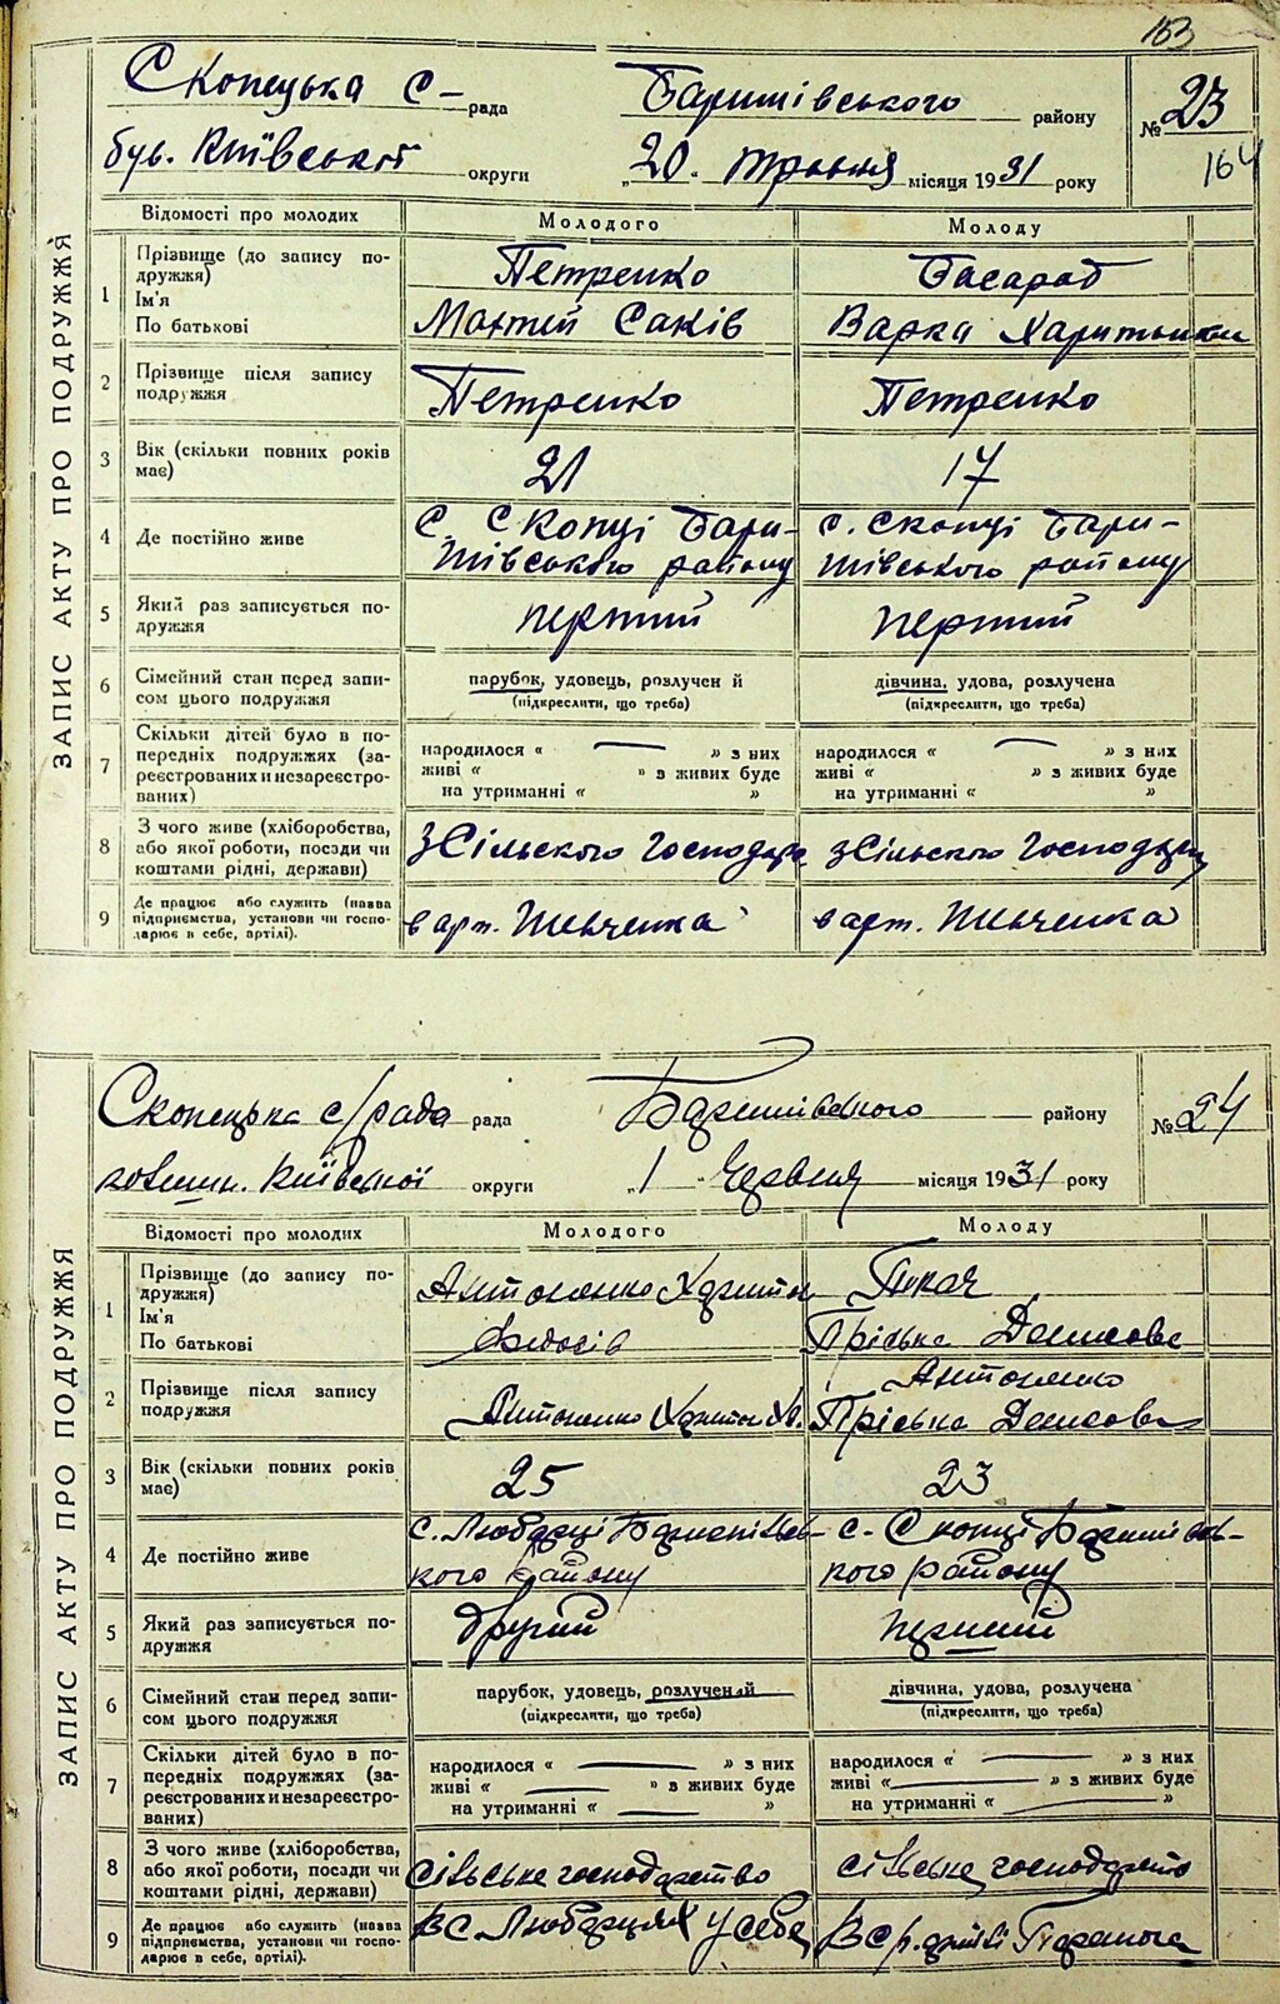 163
Скопецька с – рада Баришівського району № 23
був. Київської округи „20“ травня місяця 1931 року 164
ЗАПИС АКТУ ПРО ПОДРУЖЖЯ
Відомості про молодих Молодого Молоду
1 Прізвище (до запису по-
дружжя) Петренко Басараб
Ім'я
По батькові Мантей Саків Варка Харитонівни
2 Прізвище після запису
подружжя Петренко Петренко
3 Вік (скільки повних років
має) 21 17
4 Де постійно живе С. Скопці Бари- с. Скопці Бари-
шівського району шівського району
5 Який раз записується по-
дружжя перший перший
6 Сімейний стан перед запи-
сом цього подружжя парубок, удовець, розлучений дівчина, удова, розлучена
(підкреслити, що треба) (підкреслити, що треба)
7 Скільки дітей було в по-
передніх подружжях (за-
реєстрованих и незареєстро-
ваних) народилося « — » з них народилося « — » з них
живі « » з живих буде живі « » з живих буде
на утриманні « » на утриманні « »
8 З чого живе (хліборобства,
або якої роботи, посади чи
коштами рідні, держави) з Сільського господар з Сільського господар
9 Де працює або служить (назва
підприємства, установи чи госпо-
дарює в себе, артілі). в арт. Шевченка в арт. Шевченка
Скопецька с/рада рада Баришівського району № 24
Київської округи „1“ Червня місяця 1931 року
ЗАПИС АКТУ ПРО ПОДРУЖЖЯ
Відомості про молодих Молодого Молоду
1 Прізвище (до запису по-
дружжя) Антоненко Харитон Ткач
Ім'я
По батькові Федосів Пріська Денисова
2 Прізвище після запису
подружжя Антоненко Харитон Антоненко
Пріська Денисова
3 Вік (скільки повних років
має) 25 23
4 Де постійно живе с. Любарці Бориспільсь- с. Скопці Баришівсь-
кого району кого району
5 Який раз записується по-
дружжя другий перший
6 Сімейний стан перед запи-
сом цього подружжя парубок, удовець, розлучений дівчина, удова, розлучена
(підкреслити, що треба) (підкреслити, що треба)
7 Скільки дітей було в по-
передніх подружжях (за-
реєстрованих и незареєстро-
ваних) народилося « — » з них народилося « — » з них
живі « — » з живих буде живі « — » з живих буде
на утриманні « — » на утриманні « — »
8 З чого живе (хліборобства,
або якої роботи, посади чи
коштами рідні, держави) сільське господарство сільське господарство
9 Де працює або служить (назва
підприємства, установи чи госпо-
дарює в себе, артілі). В с Любарцях у себе В